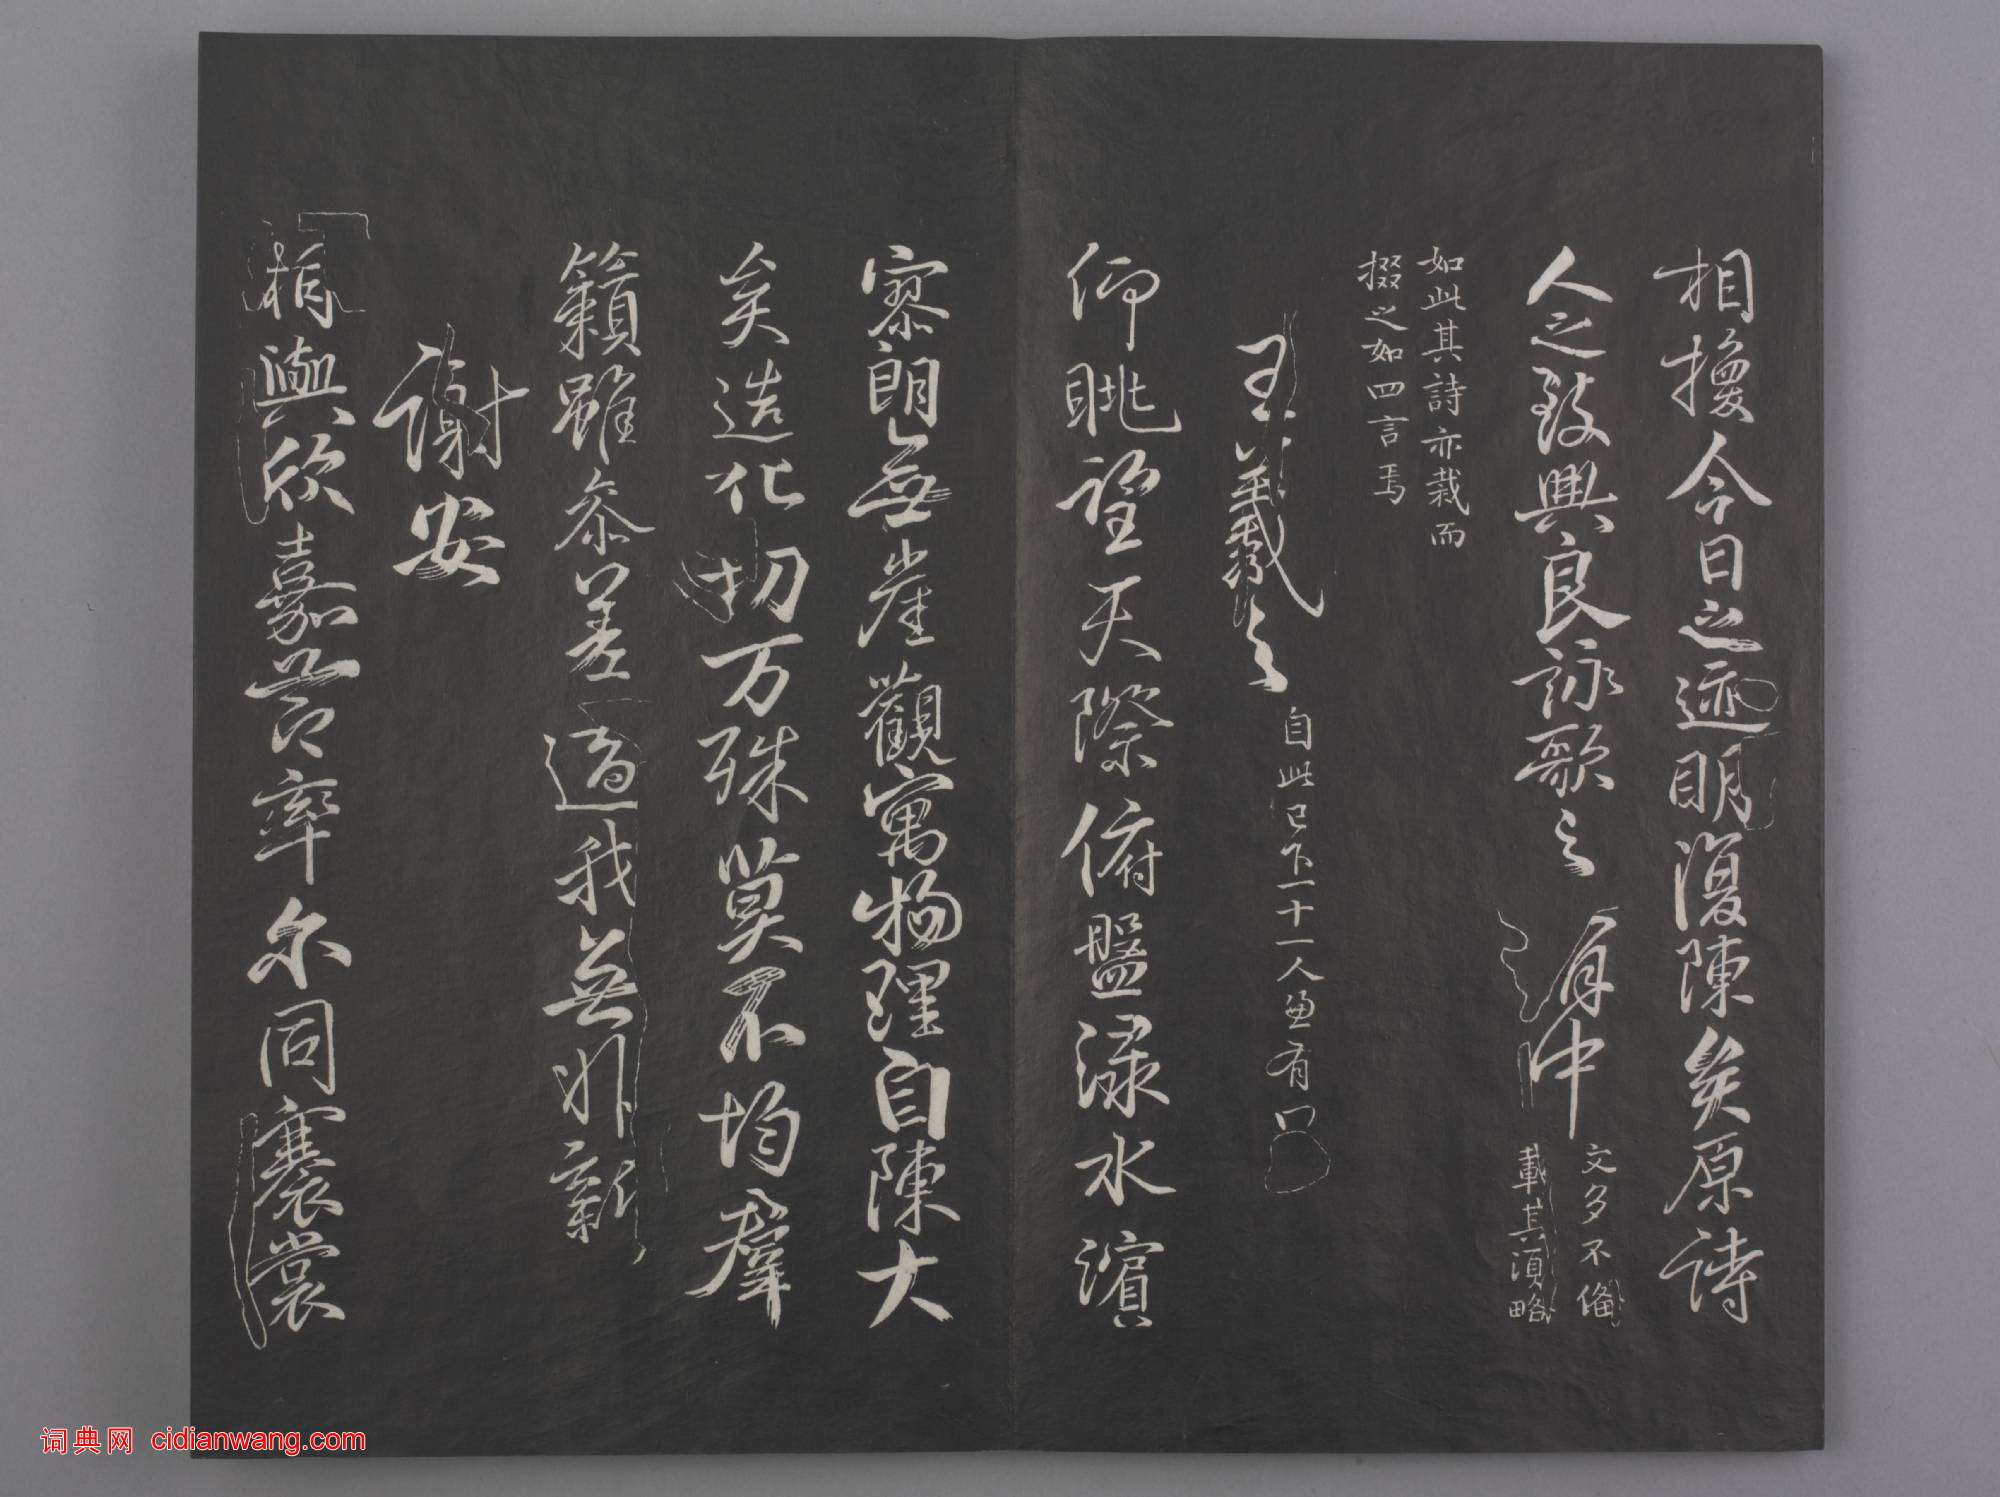 相換今日之迹明復陳矣原詩
人之致興良詠歌之有由
文多不備
載其須略
如此其詩亦裁而
掇之如四言焉
王羲之
自此已下一十一人並有
仰眺望天際俯盤淥水濱
寥朗無崖觀寓物理自陳大
矣造化功万殊莫不均群
籟雖參差適我無非新
謝安
相與欣嘉節率尔同褰裳
词典网 cidianwang.com